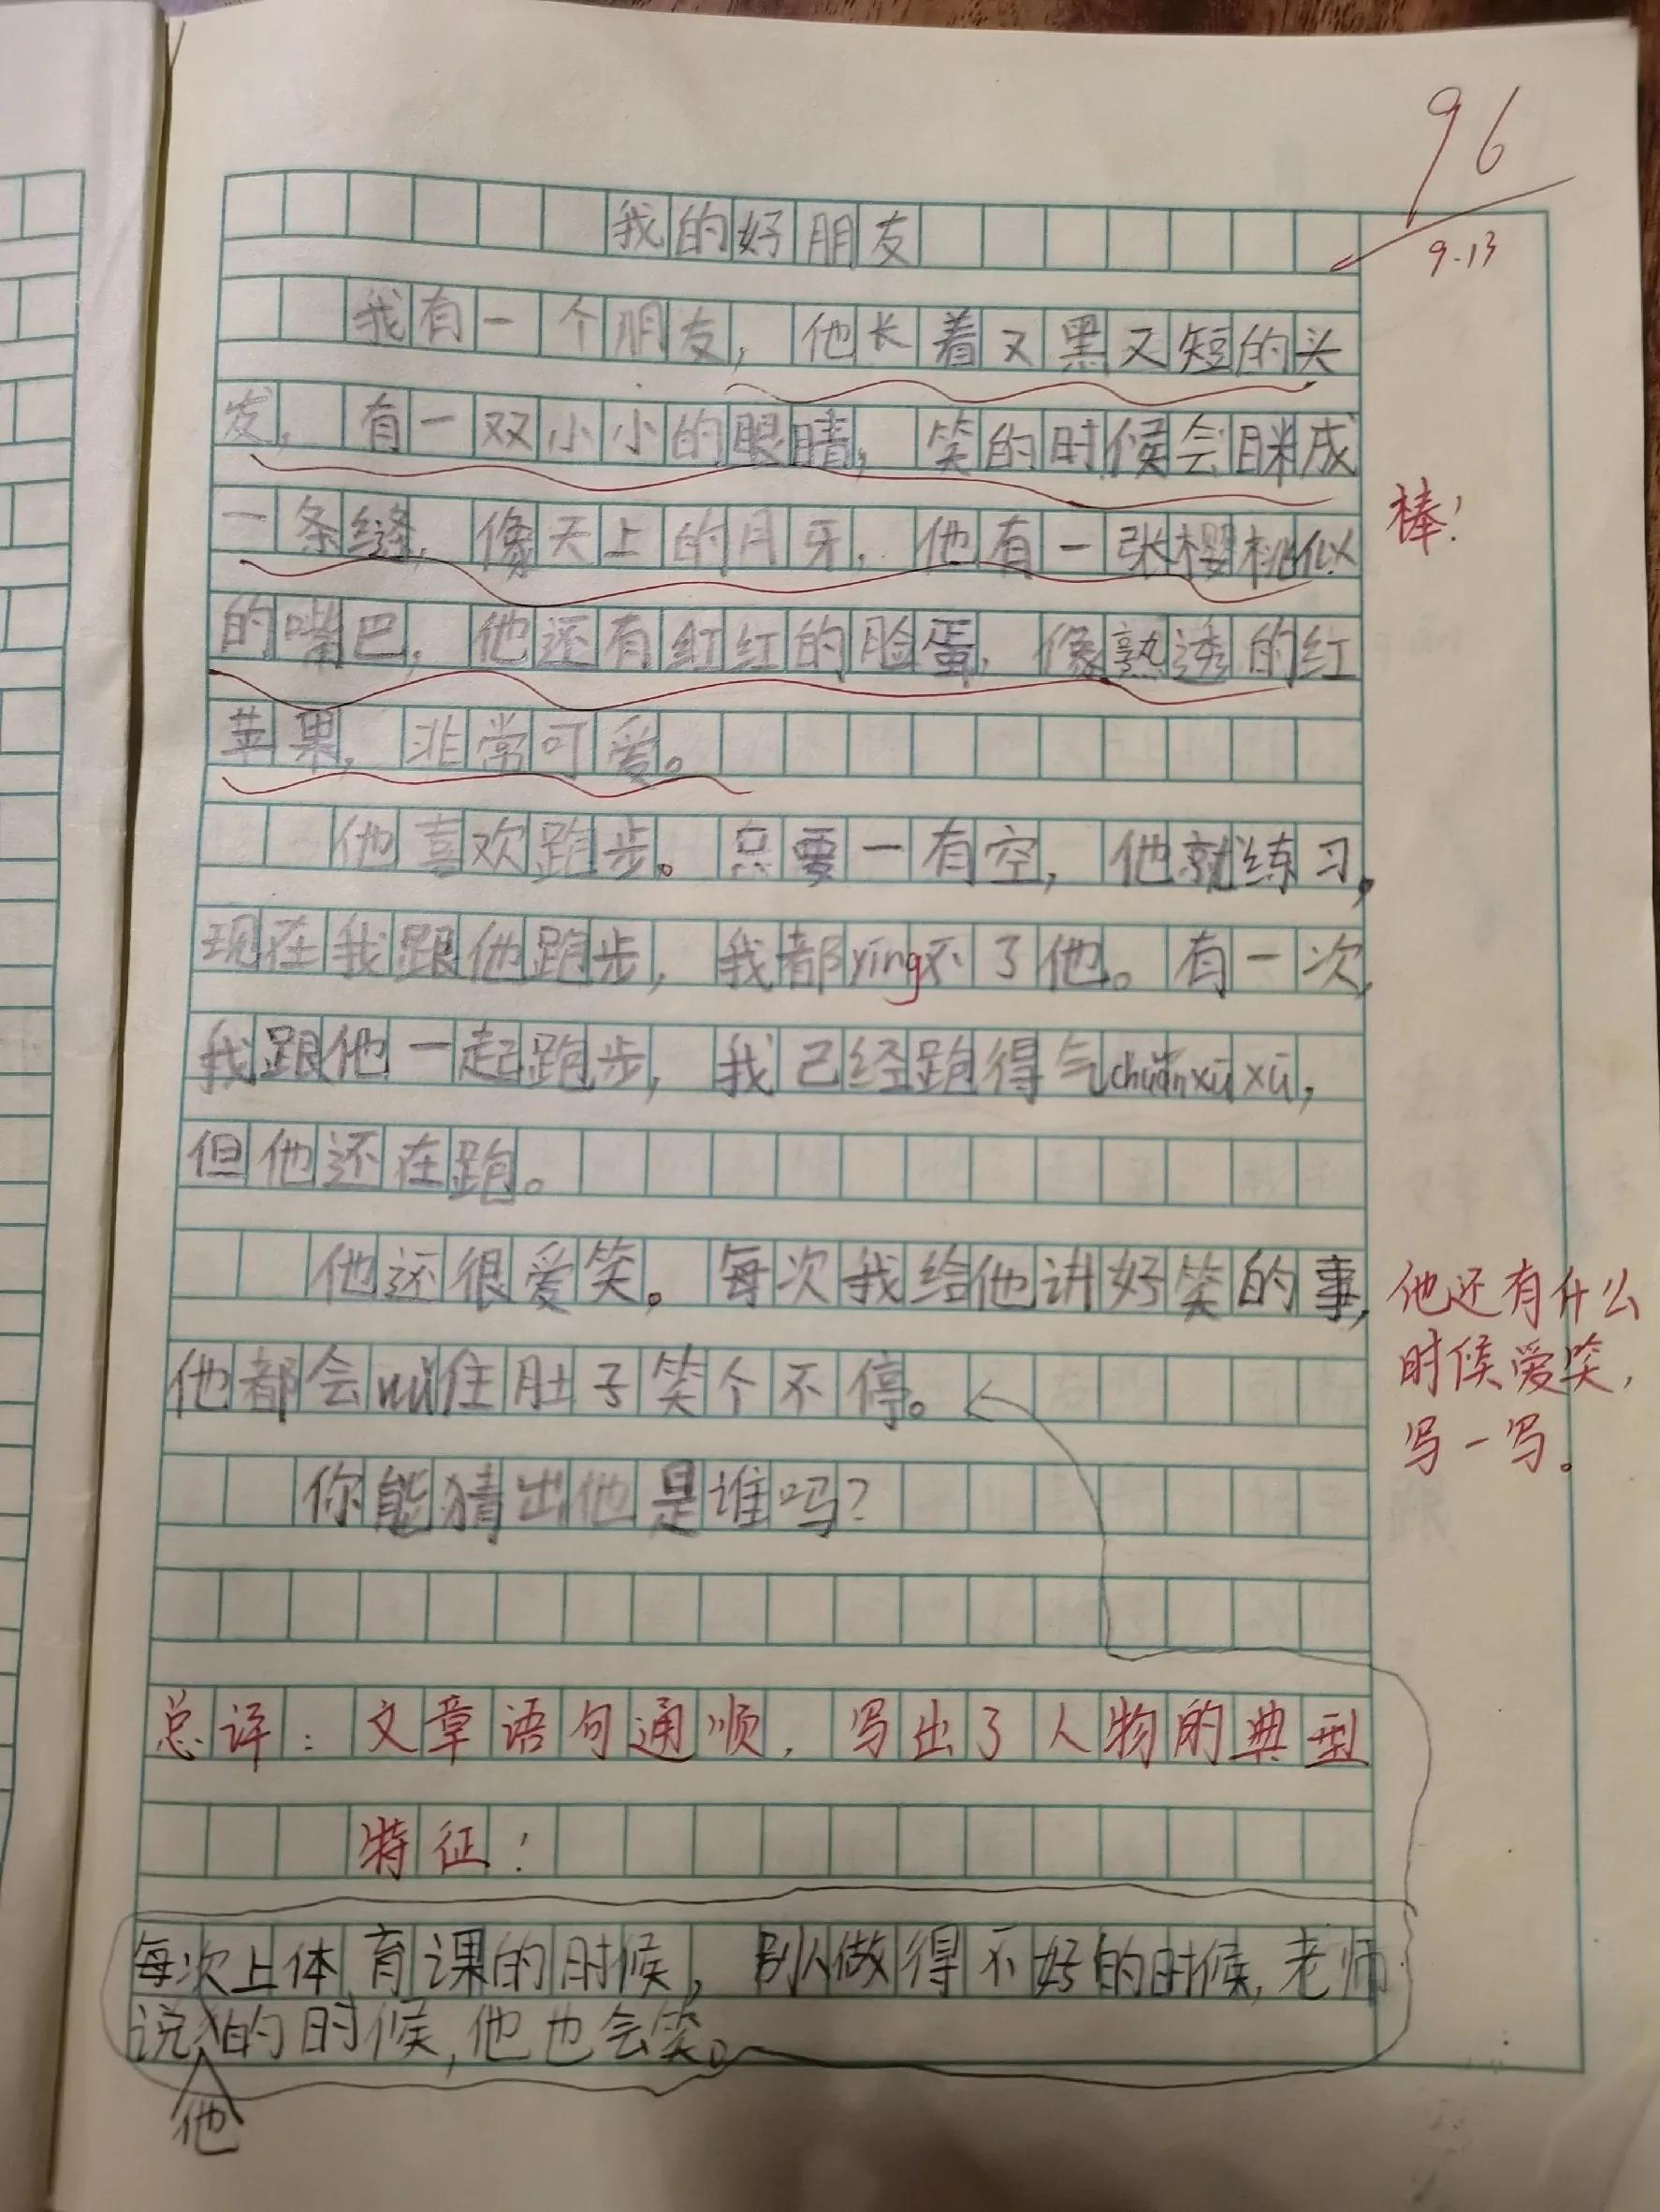 96
9.13
我的好朋友
我有一个朋友，他长着又黑又短的头
发，有一双小小的眼睛，笑的时候会眯成
一条缝，像天上的月牙，他有一张樱桃似
的嘴巴，他还有红红的脸蛋，像熟透的红
苹果，非常可爱。
棒！
他喜欢跑步。只要一有空，他就练习，
现在我跟他跑步，我都yíng不了他。有一次，
我跟他一起跑步，我已经跑得气chuǎnxūxū，
但他还在跑。
他还很爱笑。每次我给他讲好笑的事，
他都会wǔ住肚子笑个不停。
他还有什么
时候爱笑，
写一写。
你能猜出他是谁吗？
总评：文章语句通顺，写出了人物的典型
特征！
每次上体育课的时候，别人做得不好的时候，老师
说他的时候，他也会笑。